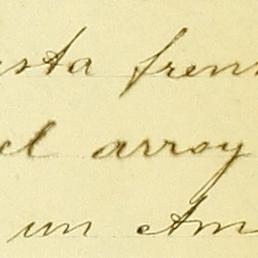 ista fren
el arroy
un Am